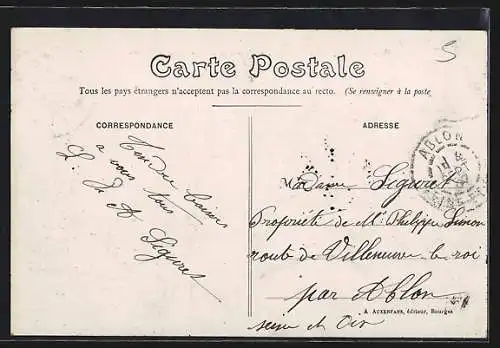 5
Carte Postale
Tous les pays étrangers n'acceptent pas la correspondance au recto. (Se renseigner à la poste
CORRESPONDANCE
ADRESSE
Tendre baiser
a vous tous
L. A Liguret
ABLON
Madame Liguret
Propriété de Mr Philippe Simon
route de Villeneuve le roi
par Ablon
A. AUXENFANS, éditeur, Bourges
seine et Oise